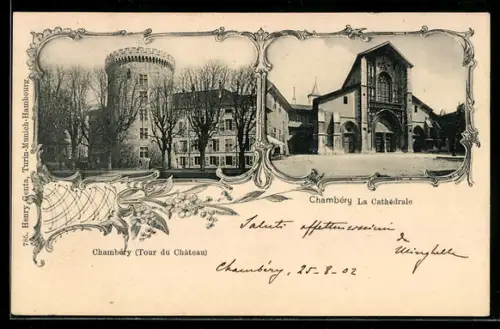 786. Henry Genta, Turin-Munich-Hambourg.
Chambéry La Cathédrale
Chambéry (Tour du Château)
Saluti affettuosissimi
da
Chambéry, 25-8-02